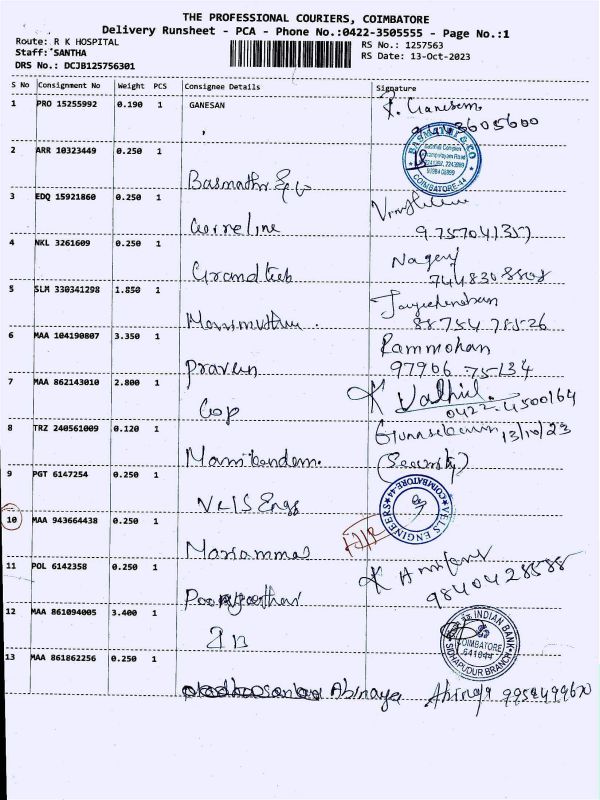 THE PROFESSIONAL COURIERS, COIMBATORE
Delivery Runsheet - PCA - Phone No.:0422-3505555 - Page No.:1
Route: R K HOSPITAL
Staff: SANTHA
DRS No.: DCJB125756301
RS No.: 1257563
RS Date: 13-Oct-2023
S No Consignment No Weight PCS Consignee Details Signature
1 PRO 15255992 0.190 1 GANESAN
,
P. Ganesan
3605600
2 ARR 10323449 0.250 1
BASMATHI & CO
COIMBATORE-44
3 EDQ 15921860 0.250 1
9757041357
4 NKL 3261609 0.250 1
Grandtech
Nagaraj
7448308808
5 SLM 330341298 1.850 1
Marimuthu .
88754 78526
6 MAA 104190807 3.350 1
Praveen
Rammohan
97906 75134
7 MAA 862143010 2.800 1
Gop
K
0422-4500164
8 TRZ 240561009 0.120 1
13/10/23
(Security)
9 PGT 6147254 0.250 1
VELS Engg
VELS ENGINEERS
COIMBATORE-44
10 MAA 943664438 0.250 1
Mariammas
11 POL 6142358 0.250 1
9840428588
12 MAA 861094005 3.400 1
IB
INDIAN BANK
COIMBATORE
641044
SIDHAPUDUR BRANCH
13 MAA 861862256 0.250 1
Abinaya Abinaya 9952499670